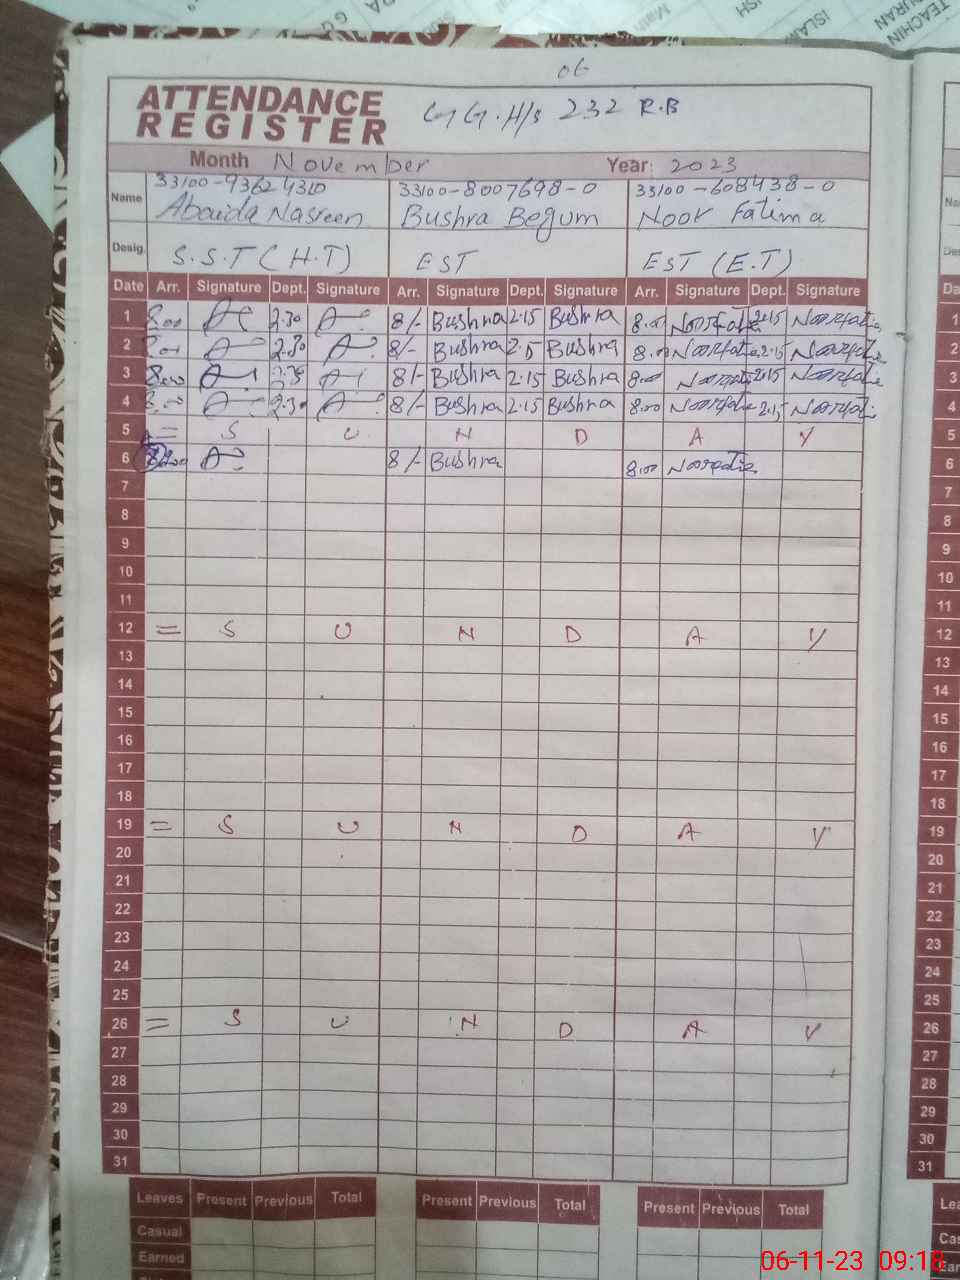 TEACHIN
QURAN
ISLAM
ISH
Math
06
ATTENDANCE
REGISTER
G G.H/s 232 R.B
Month November Year: 2023
Name 33100-93624310 33100-8007698-0 33100-608438-0
Abaida Nasreen Bushra Begum Noor Fatima
Desig. S.S.T (H.T) EST EST (E.T)
Date Arr. Signature Dept. Signature Arr. Signature Dept. Signature Arr. Signature Dept. Signature Date
1 8.00 2.30 8/- Bushra 2.15 Bushra 8.00 Noorfatima 2.15 Noorfatima 1
2 2.30 8/- Bushra 2.15 Bushra 8.00 Noorfatima 2.15 Noorfatima 2
3 8.00 8/- Bushra 2.15 Bushra 8.00 2.15 3
4 8.00 2.30 8/- Bushra 2.15 Bushra 8.00 2.15 4
5 = S U N D A Y 5
6 8.00 8/- Bushra 8.00 6
7 7
8 8
9 9
10 10
11 11
12 = S U N D A Y 12
13 13
14 14
15 15
16 16
17 17
18 18
19 = S U N D A Y 19
20 20
21 21
22 22
23 23
24 24
25 25
26 = S U N D A Y 26
27 27
28 28
29 29
30 30
31 31
Leaves Present Previous Total Present Previous Total Present Previous Total
Casual
Earned
06-11-23 09:18